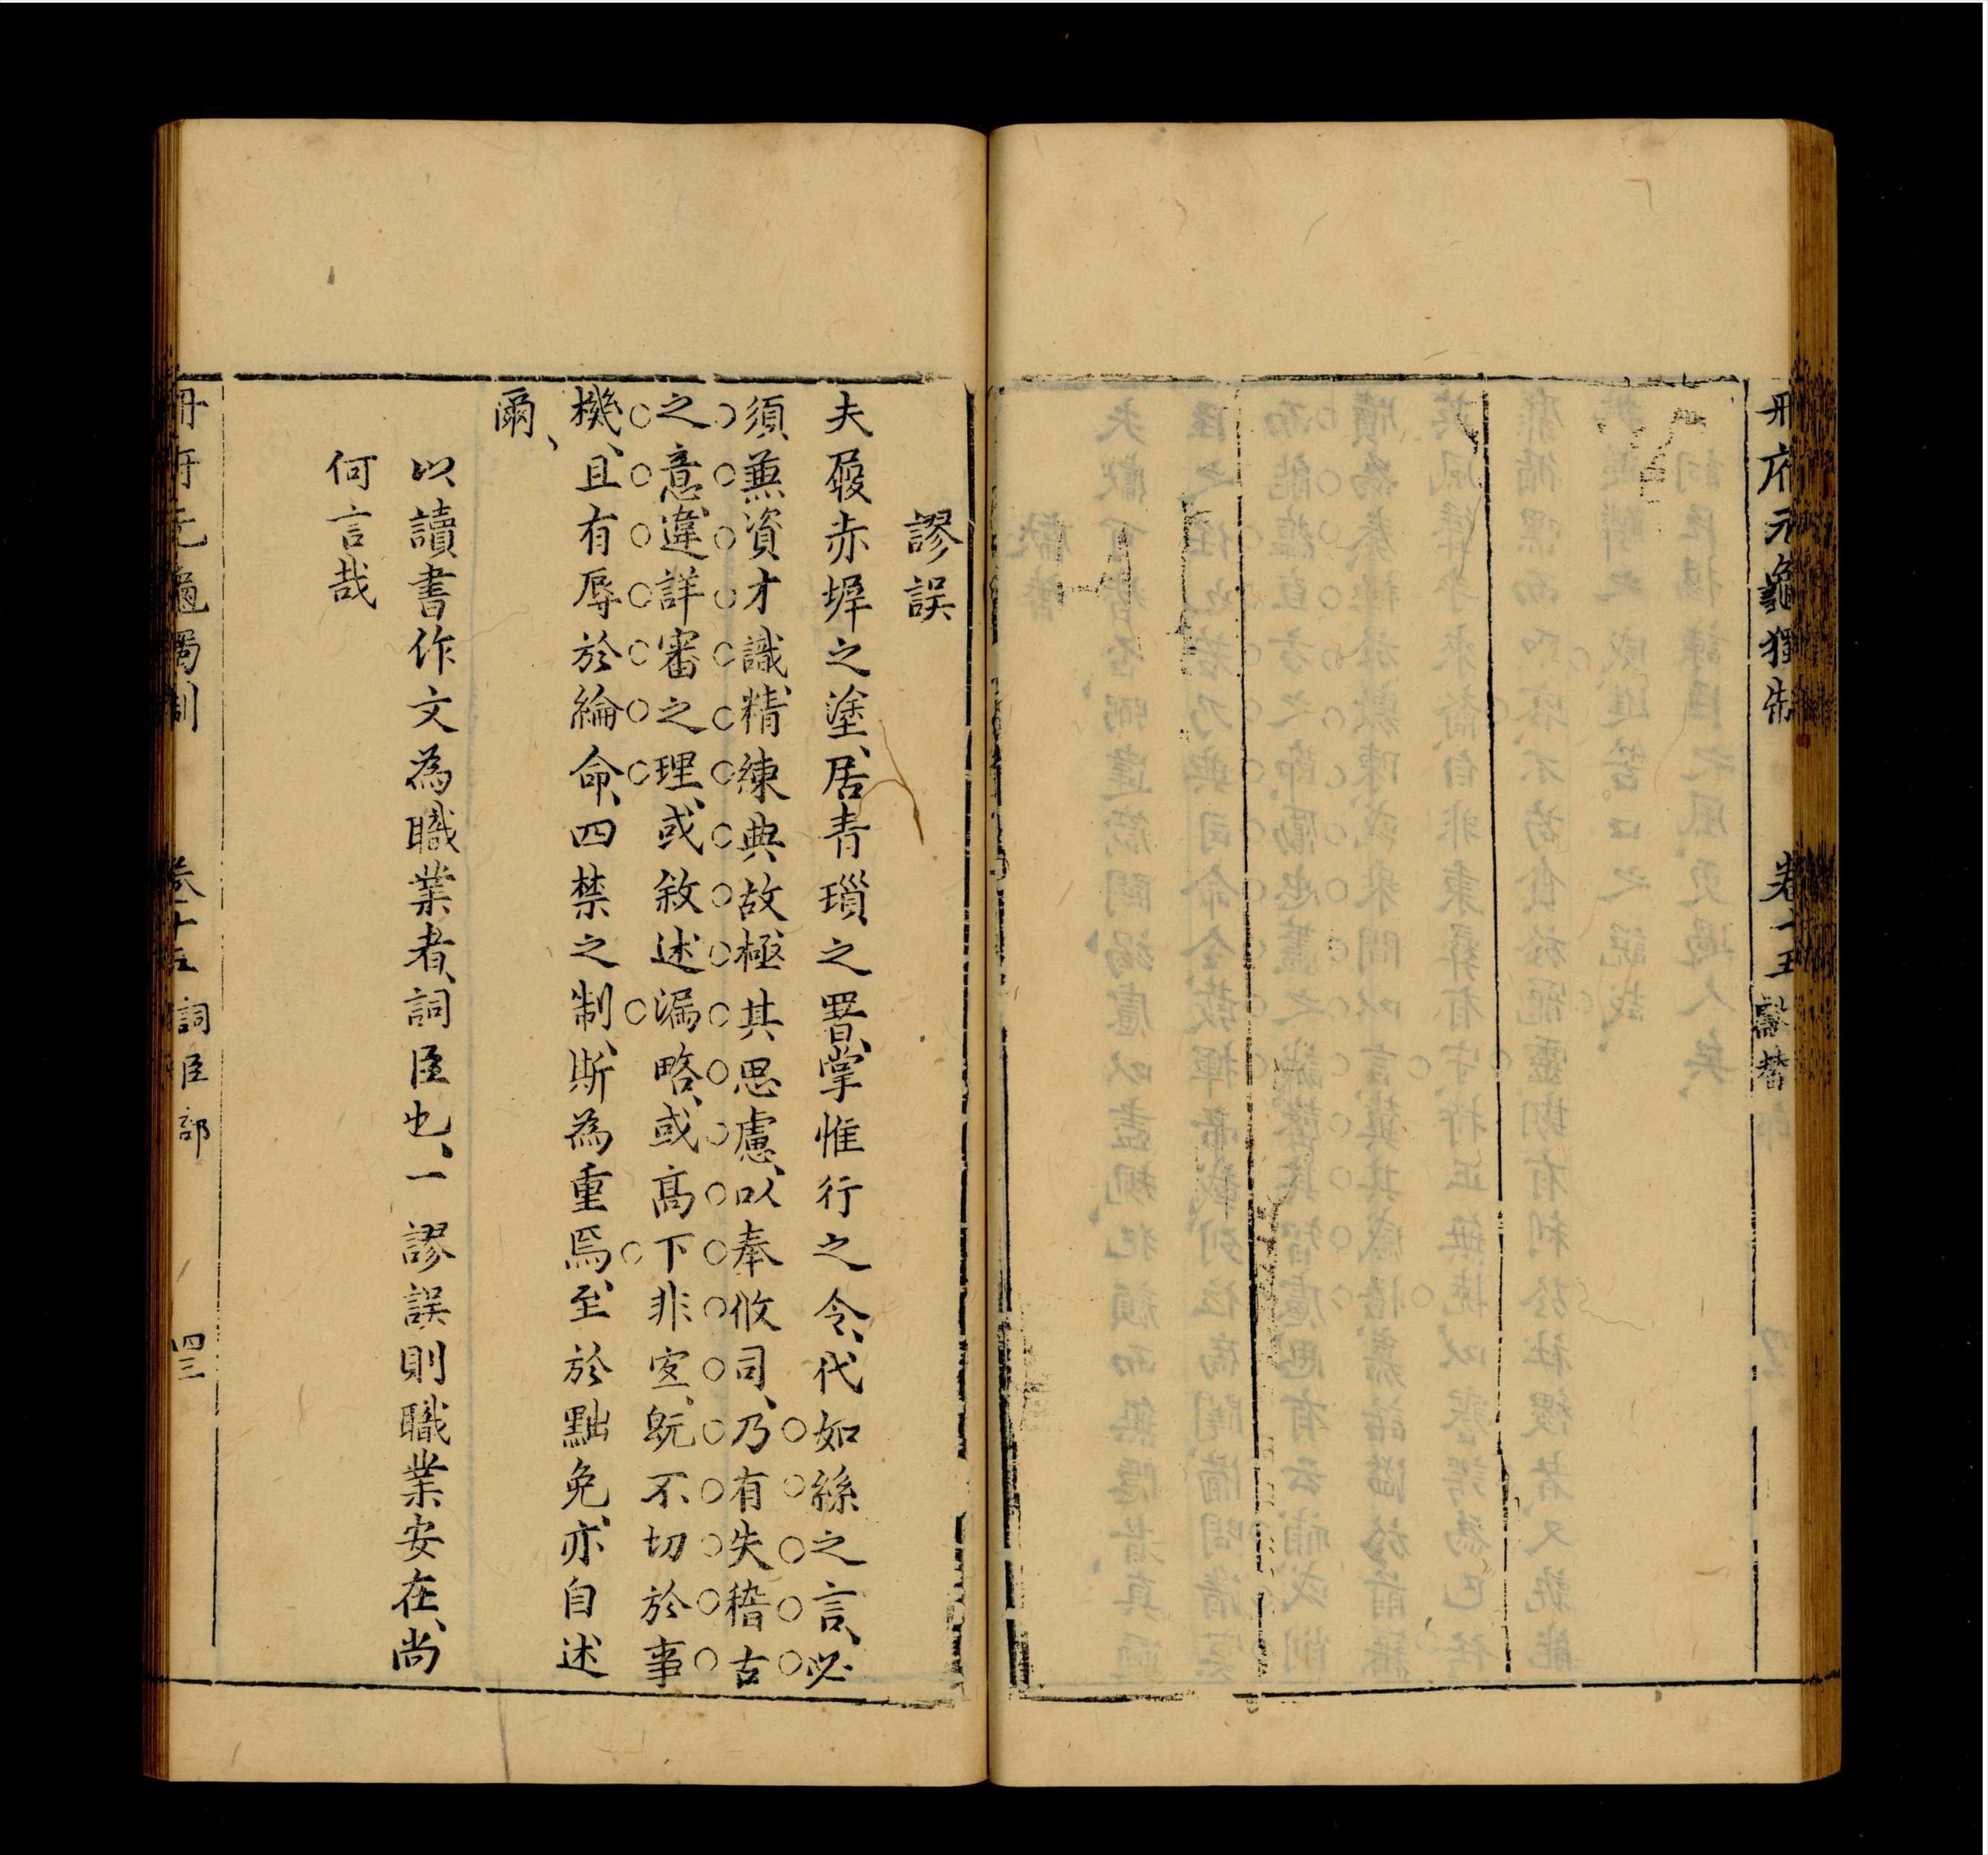 冊府元龜獨制 卷十五 獻替
謬誤
夫履赤墀之塗、居青瑣之署、掌惟行之令、代如絲之言、必
須兼資才識、精練典故、極其思慮、以奉攸司、乃有失稽古
之意、違詳審之理、或敘述漏略、或高下非宜、既不切於事
機、且有辱於綸命、四禁之制、斯為重焉、至於黜免、亦自述
爾、
以讀書作文為職業者、詞臣也、一謬誤則職業安在、尚
何言哉
冊府元龜獨制 卷十五 詞臣部 四三